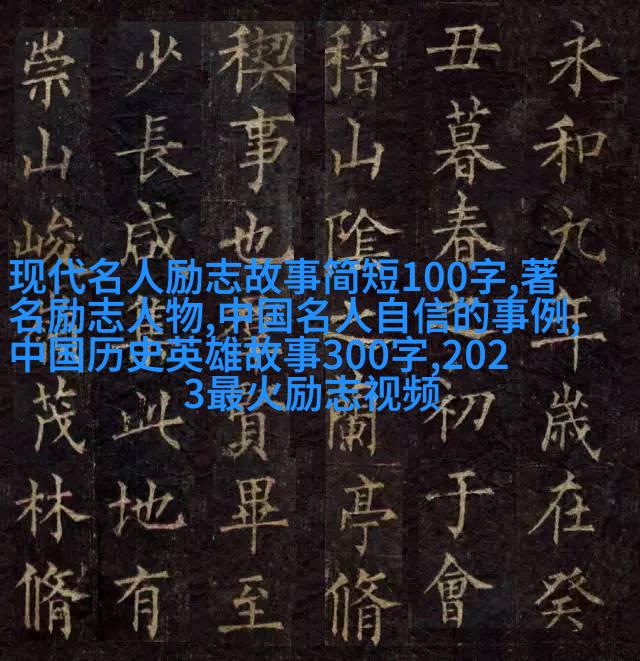 永和九年歲在癸
丑暮春之初于會
稽山陰之蘭亭脩
稧事也賢畢至
少長咸集此地有
崇山峻茂林脩
现代名人励志故事简短100字,著
名励志人物,中国名人自信的事例,
中国历史英雄故事300字,202
3最火励志视频